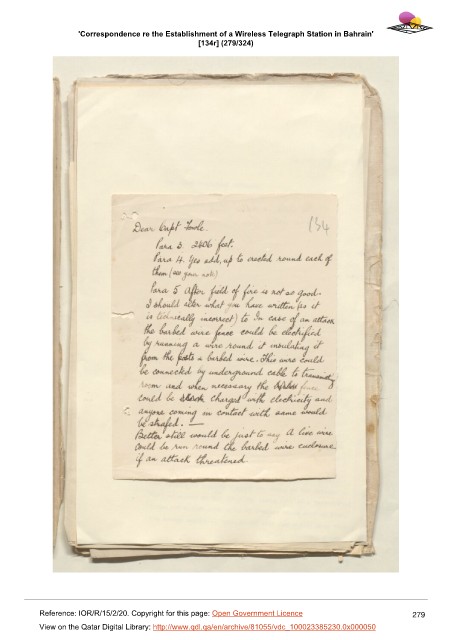 'Correspondence re the Establishment of a Wireless Telegraph Station in Bahrain'
[134r] (279/324)
134
Dear Capt Fowle.
Para 3. 2806 feet.
Para 4. Yes add, up to erected round each of
them (see your note)
Para 5 After field of fire is not so good -
I should alter what you have written (as it
is technically incorrect) to In case of an attack
the barbed wire fence could be electrified
by running a wire round it insulating it
from the posts & barbed wire. This wire could
be connected by underground cable to
room and when necessary the fence
could be charged with electricity and
anyone coming in contact with same would
be strafed. —
Better still would be just to say A live wire
could be run round the barbed wire enclosure
if an attack threatened.
Reference: IOR/R/15/2/20. Copyright for this page: Open Government Licence
View on the Qatar Digital Library: http://www.qdl.qa/en/archive/81055/vdc_100023385230.0x000050
279